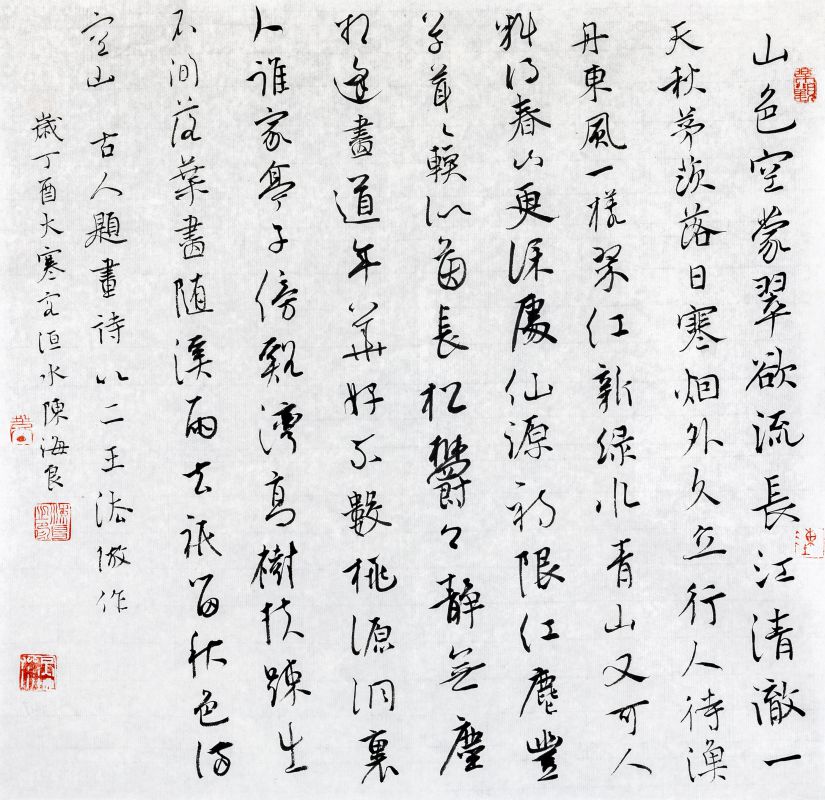 山色空蒙翠欲流長江清澈一
天秋茅茨落日寒烟外久立行人待渔
舟東風一樣翠紅新緑水青山又可人
料得春山更深處仙源初限紅塵豐
草茸〻輭似茵長松鬱〻静無塵
相逢盡道年華好不數桃源洞裏
人誰家亭子傍谿灣高樹扶疎出
石間落葉盡随溪雨去祇留秋色满
空山 古人題畫詩以二王法倣作
歲丁酉大寒客洹水陳海良